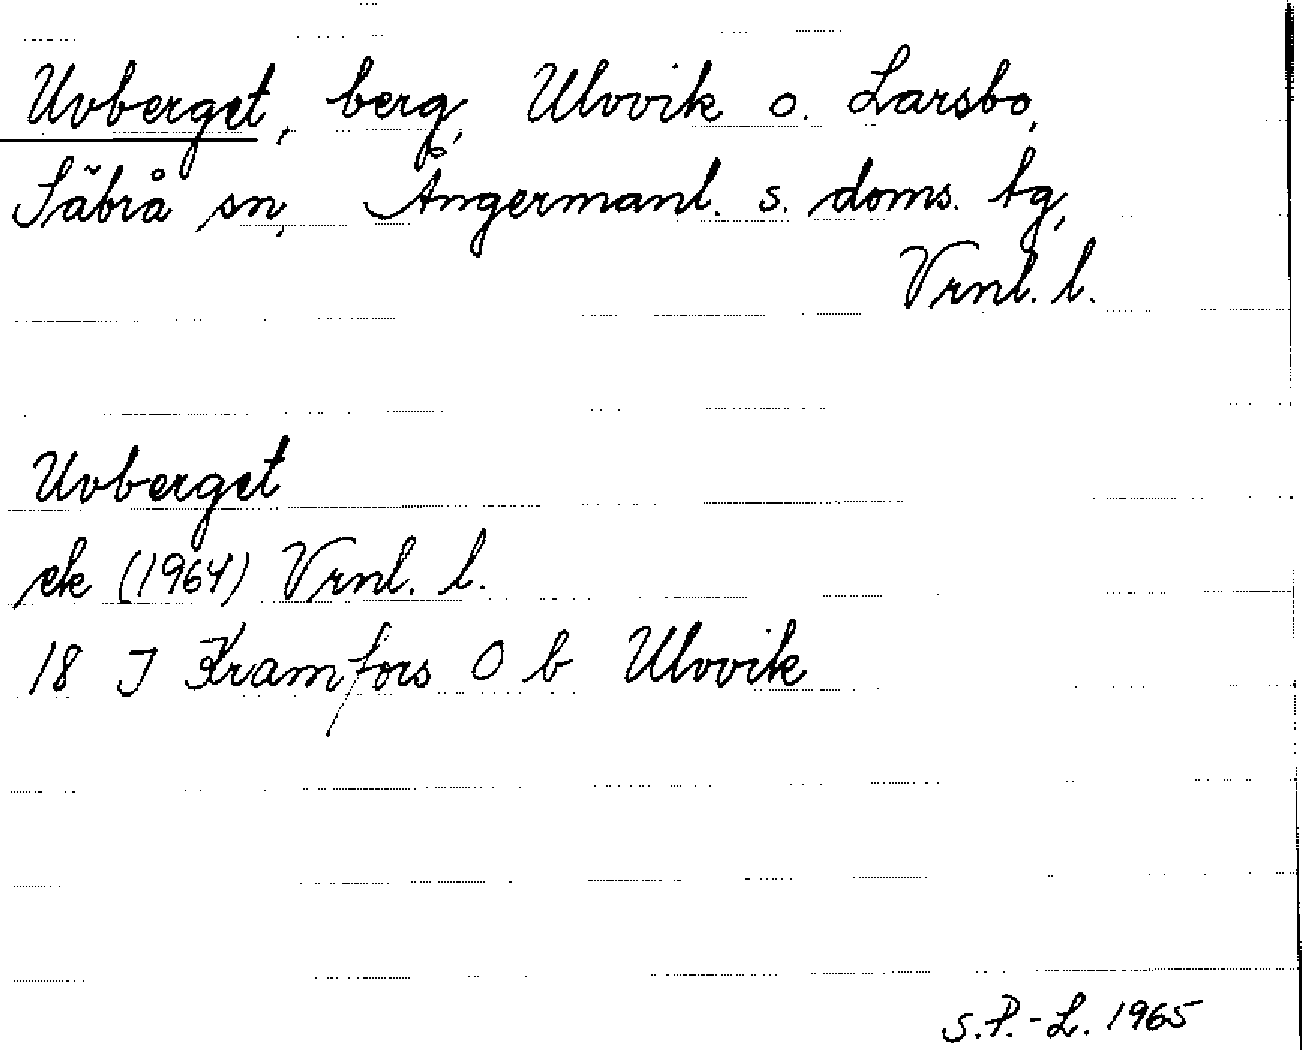 Uvberget, berg, Ulvvik o. Larsbo,
Säbrå sn, Ångermanl. s. doms. tg,
Vrnl. l.
Uvberget
ek (1964) Vrnl. l.
18 I Kramfors O b Ulvvik
S.P.-L. 1965